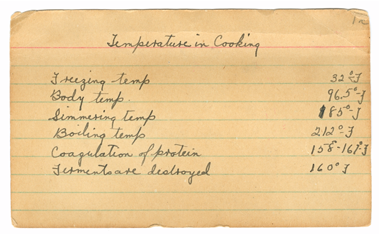 Temperature in Cooking
Freezing temp 32°F
Body temp. 96.5°F
Simmering temp 185°F
Boiling temp 212°F
Coagulation of protein 158-167°F
Ferments are destroyed 160°F